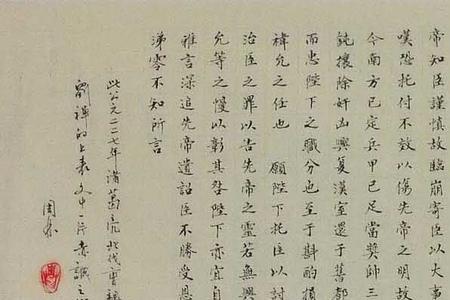 帝知臣謹慎故臨崩寄臣以大事
嘆恐托付不效以傷先帝之明故
今南方已定兵甲已足當獎師三
鈍攘除奸凶興复漢室還于舊都
而忠陛下之職分也至于斟酌損
禕允之任也 願陛下托臣以討
治臣之罪以告先帝之靈若無興
允等之慢以彰其咎陛下亦宜自
雅言深追先帝遺詔臣不勝受恩
涕零不知所言
此公元二二七年諸葛亮北伐曹魏
劉禪的上表文中一片赤誠之
周